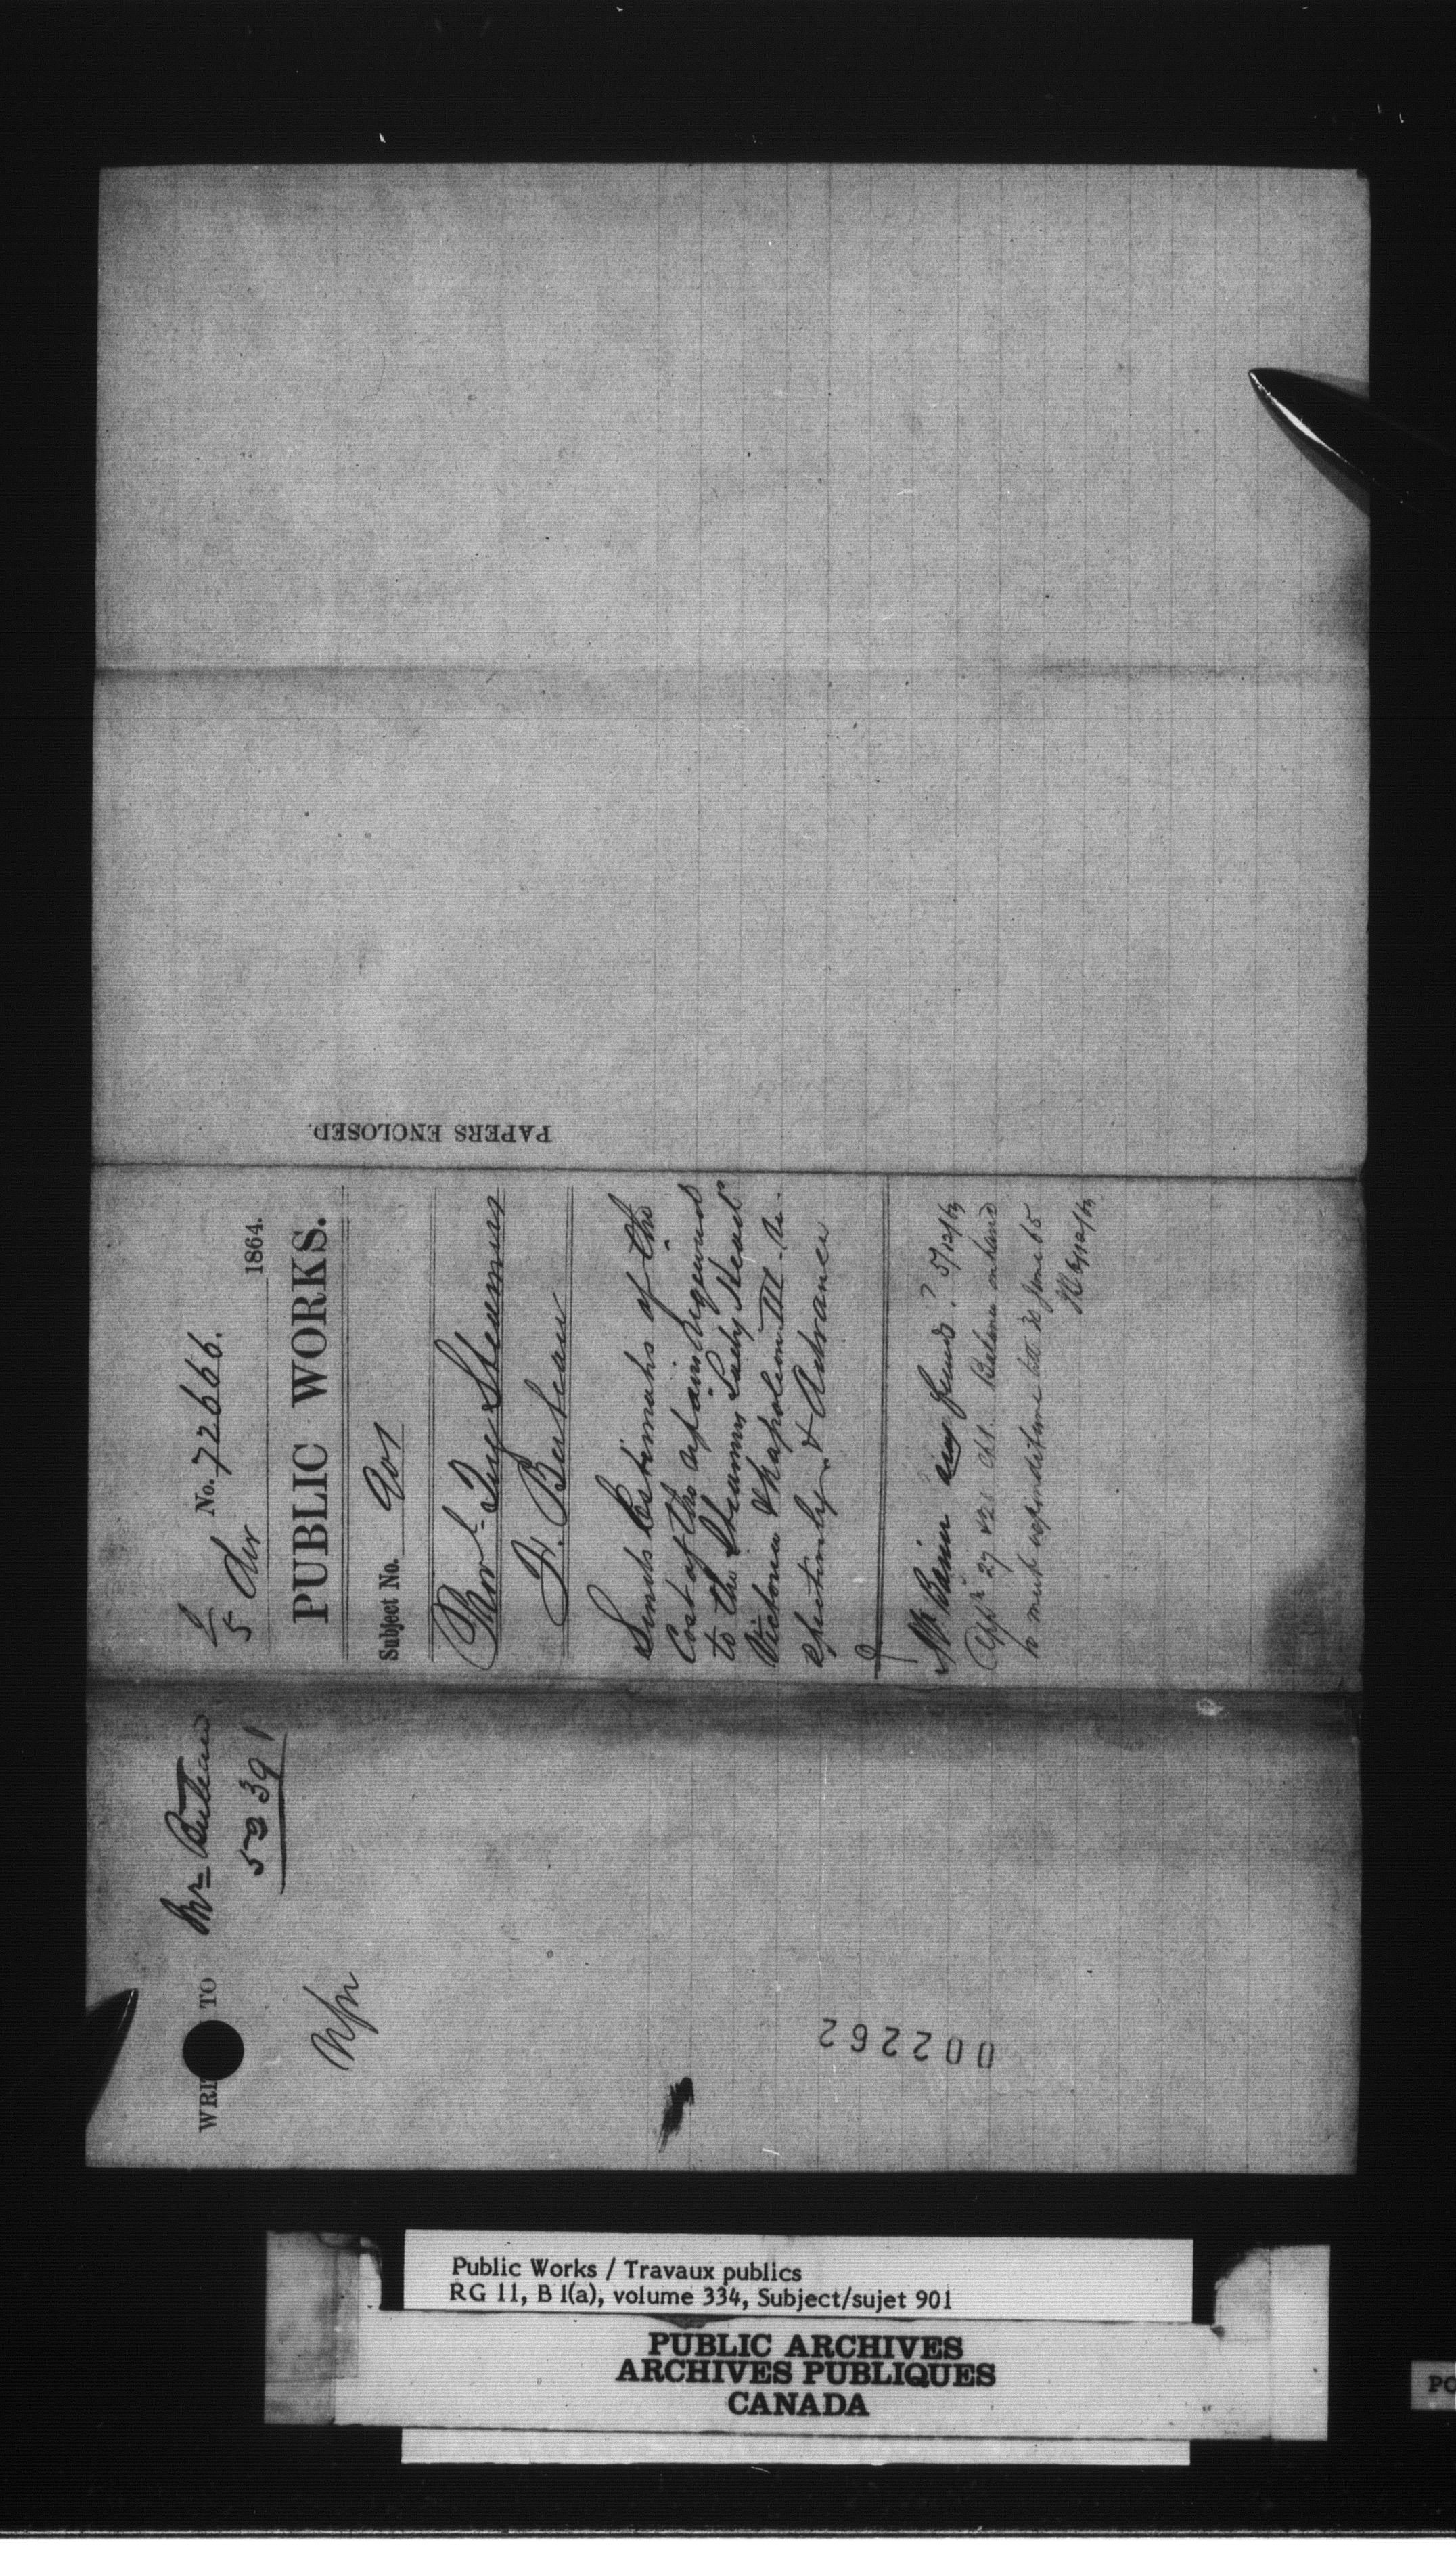 No. 72666.
5 Dec 1864.
PUBLIC WORKS.
Subject No. 901
Provl. Tug Steamers
F. Buteau
Sends Estimates of the
Cost of the repairs required
to the Steamers Lady Head
Victoria & Napoleon III
respectively & Advance
Mr Baine any funds? 5/12/64
Appn 27 Balance on hand
to meet expenditure till 30 June 65
6/12/64
PAPERS ENCLOSED.
WRI TO Mr Buteau
52391
002262
Public Works / Travaux publics
RG 11, B 1(a), volume 334, Subject/sujet 901
PUBLIC ARCHIVES
ARCHIVES PUBLIQUES
CANADA
PO